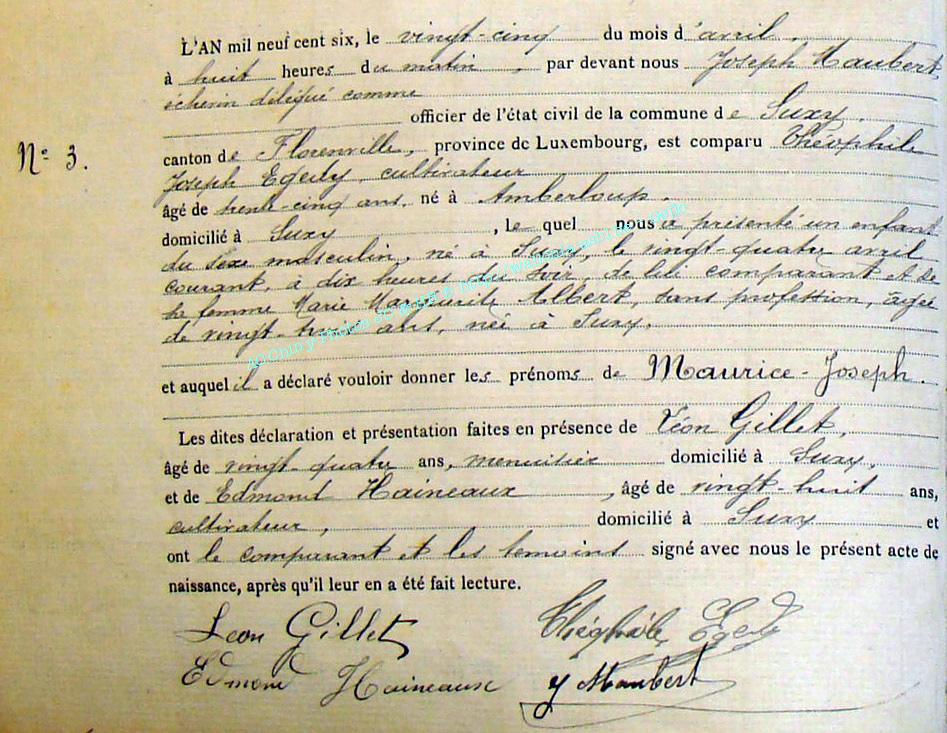 L'AN mil neuf cent six, le vingt-cinq du mois d'avril,
à huit heures du matin, par devant nous Joseph Maubert
échevin délégué comme
officier de l'état civil de la commune de Suxy,
N° 3.
canton de Florenville, province de Luxembourg, est comparu Théophile
Joseph Egedy, cultivateur
âgé de trente-cinq ans, né à Amberloup,
domicilié à Suxy, le quel nous a présenté un enfant
du sexe masculin, né à Suxy, le vingt-quatre avril
courant, à dix heures du soir, de lui comparant et de
sa femme Marie Marguerite Albert, sans profession, âgée
de vingt-trois ans, née à Suxy,
et auquel il a déclaré vouloir donner les prénoms de Maurice-Joseph.
Les dites déclaration et présentation faites en présence de Léon Gillet,
âgé de vingt-quatre ans, menuisier domicilié à Suxy,
et de Edmond Haineaux, âgé de vingt-huit ans,
cultivateur, domicilié à Suxy et
ont le comparant et les temoins signé avec nous le présent acte de
naissance, après qu'il leur en a été fait lecture.
Leon Gillet Théophile Egedy
Edmond Haineaux J Maubert